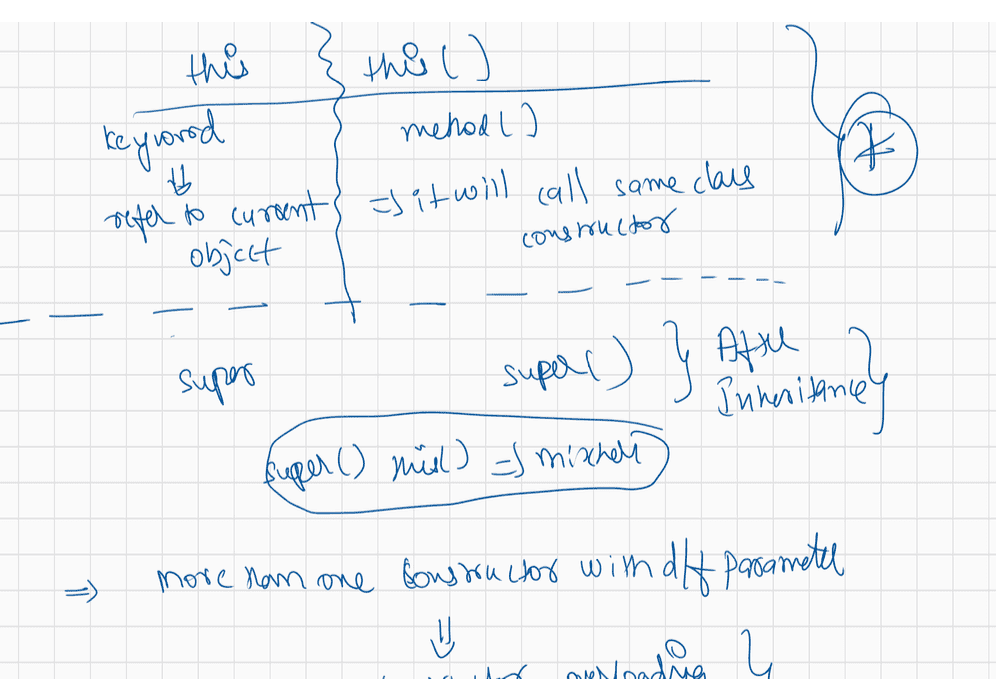 this } this()
keyword
mehod()
⇓
refer to current
object
=> it will call same class
constructor
*
super super() } After
Inheritance }
super() => mixher
=> more than one constructor with diff parameter
⇓
overloading }